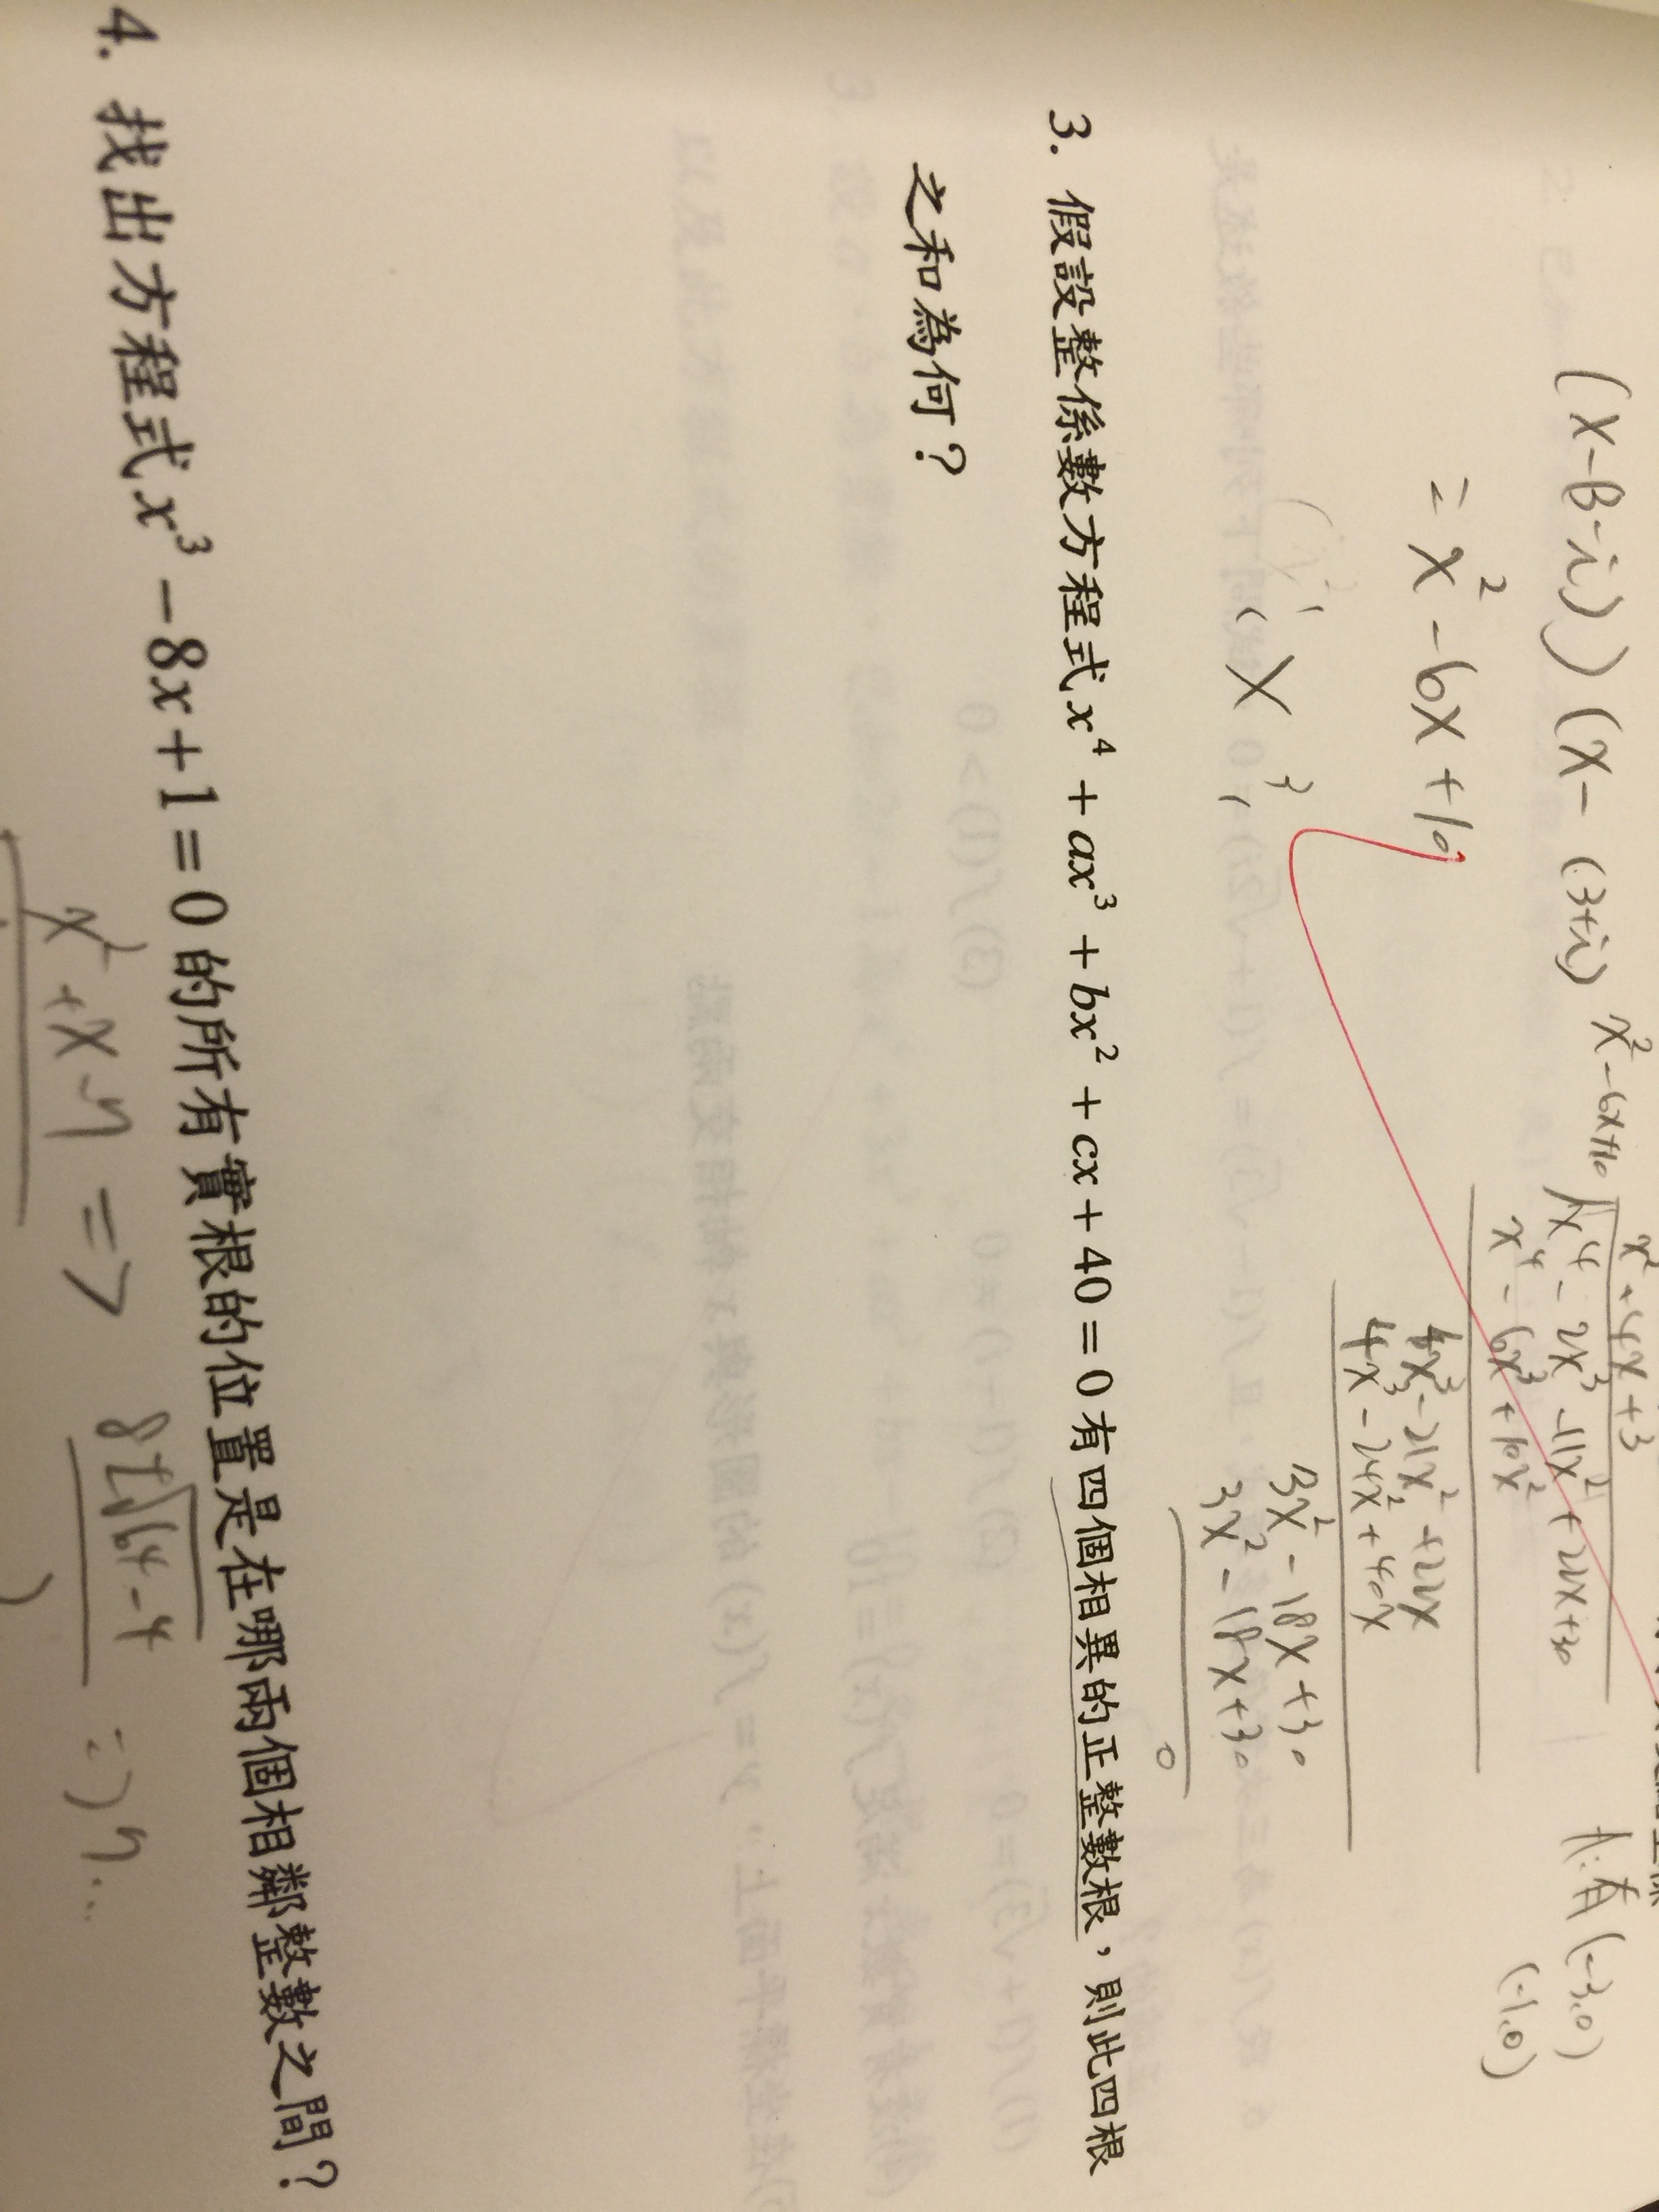 (x-3-i)(x-(3+i)
= x² - 6x + 10
x² + 4x + 3
x² - 6x + 10 x⁴ - 2x³ - 11x² + 22x + 30
x⁴ - 6x³ + 10x²
4x³ - 21x² + 22x
4x³ - 24x² + 40x
3x² - 18x + 30
3x² - 18x + 30
0
有 (-3,0)
(-1,0)
3. 假設整係數方程式 x⁴ + ax³ + bx² + cx + 40 = 0 有四個相異的正整數根，則此四根
之和為何？
4. 找出方程式 x³ - 8x + 1 = 0 的所有實根的位置是在哪兩個相鄰整數之間？
8±√64-4